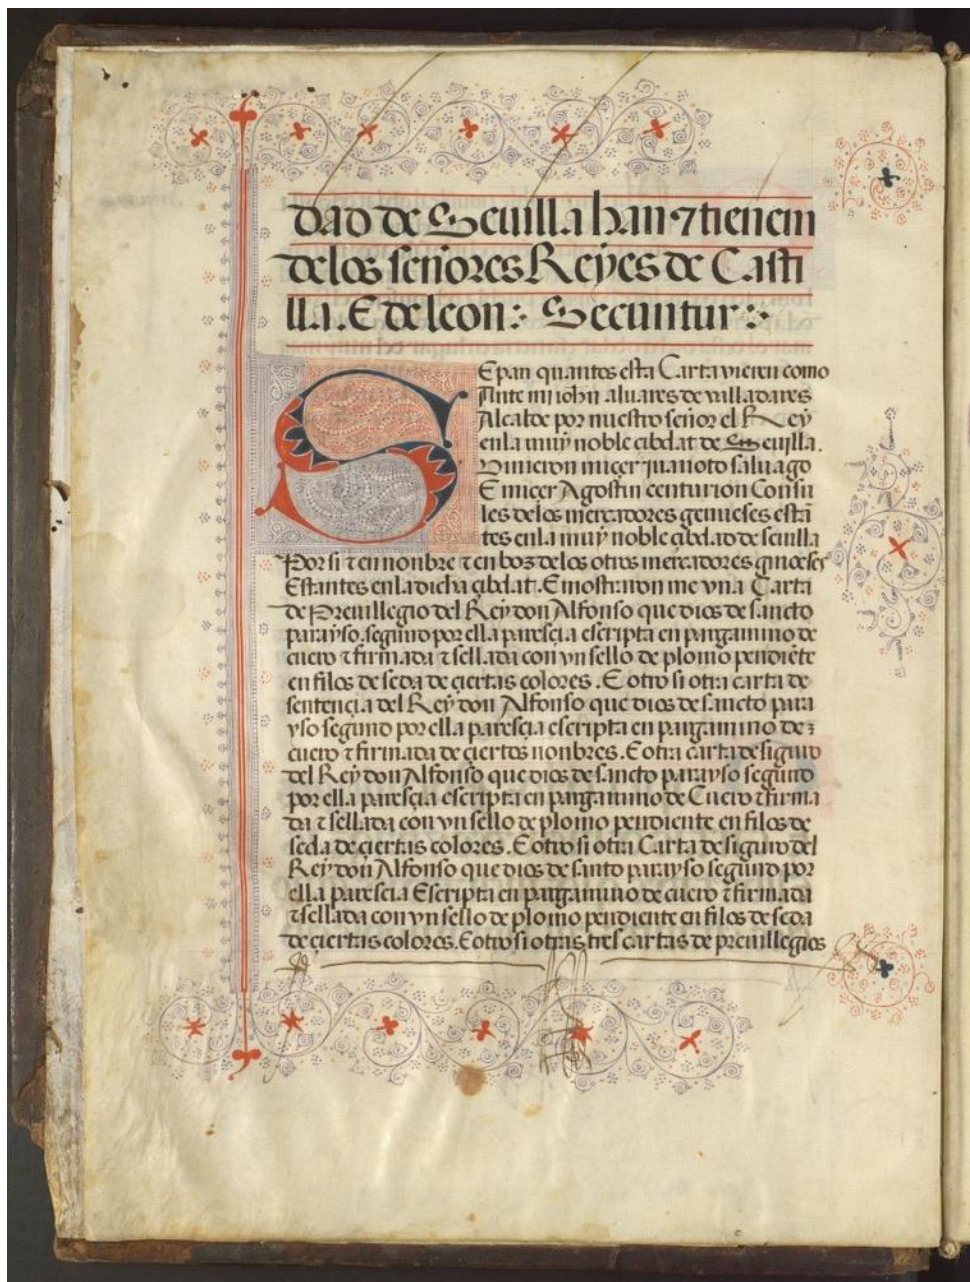 dad de Seuilla han ⁊ tienen
delos señores Reyes de Casti
lla. E de leon : Secuntur :
SEpan quantos esta Carta vieren como
Ante mi iohn aluares de valladares
Alcalde por nuestro señor el Rey
enla muy noble çibdat de Seuilla.
vinieron miçer juanoto saluago
E miçer Agostin centurion Consu
les delos mercadores genueses estā
tes enla muy noble çibdad de seuilla
Por si ⁊ en nonbre ⁊ en boz delos otros mercadores ginoeses
Estantes enla dicha çibdat. E mostraron me vna Carta
de Preuillegio del Rey don Alfonso que dios de sancto
parayso. segund por ella paresçia escripta en pargamino de
cuero ⁊ firmada ⁊ sellada con vn sello de plomo pendiēte
en filos de seda de çiertas colores. E otro si otra carta de
sentençia del Rey don Alfonso que dios de sancto para
yso segund por ella paresçia escripta en pargamino de
cuero ⁊ firmada de çiertos nonbres. E otra carta de siguro
del Rey don Alfonso que dios de sancto parayso segund
por ella paresçia escripta en pargamino de Cuero ⁊ firma
da ⁊ sellada con vn sello de plomo pendiente en filos de
seda de çiertas colores. E otro si otra Carta de siguro del
Rey don Alfonso que dios de santo parayso segund por
ella parescia Escripta en pargamino de cuero ⁊ firmada
⁊ sellada con vn sello de plomo pendiente en filos de seda
de çiertas colores. E otro si otras tres cartas de preuillegios